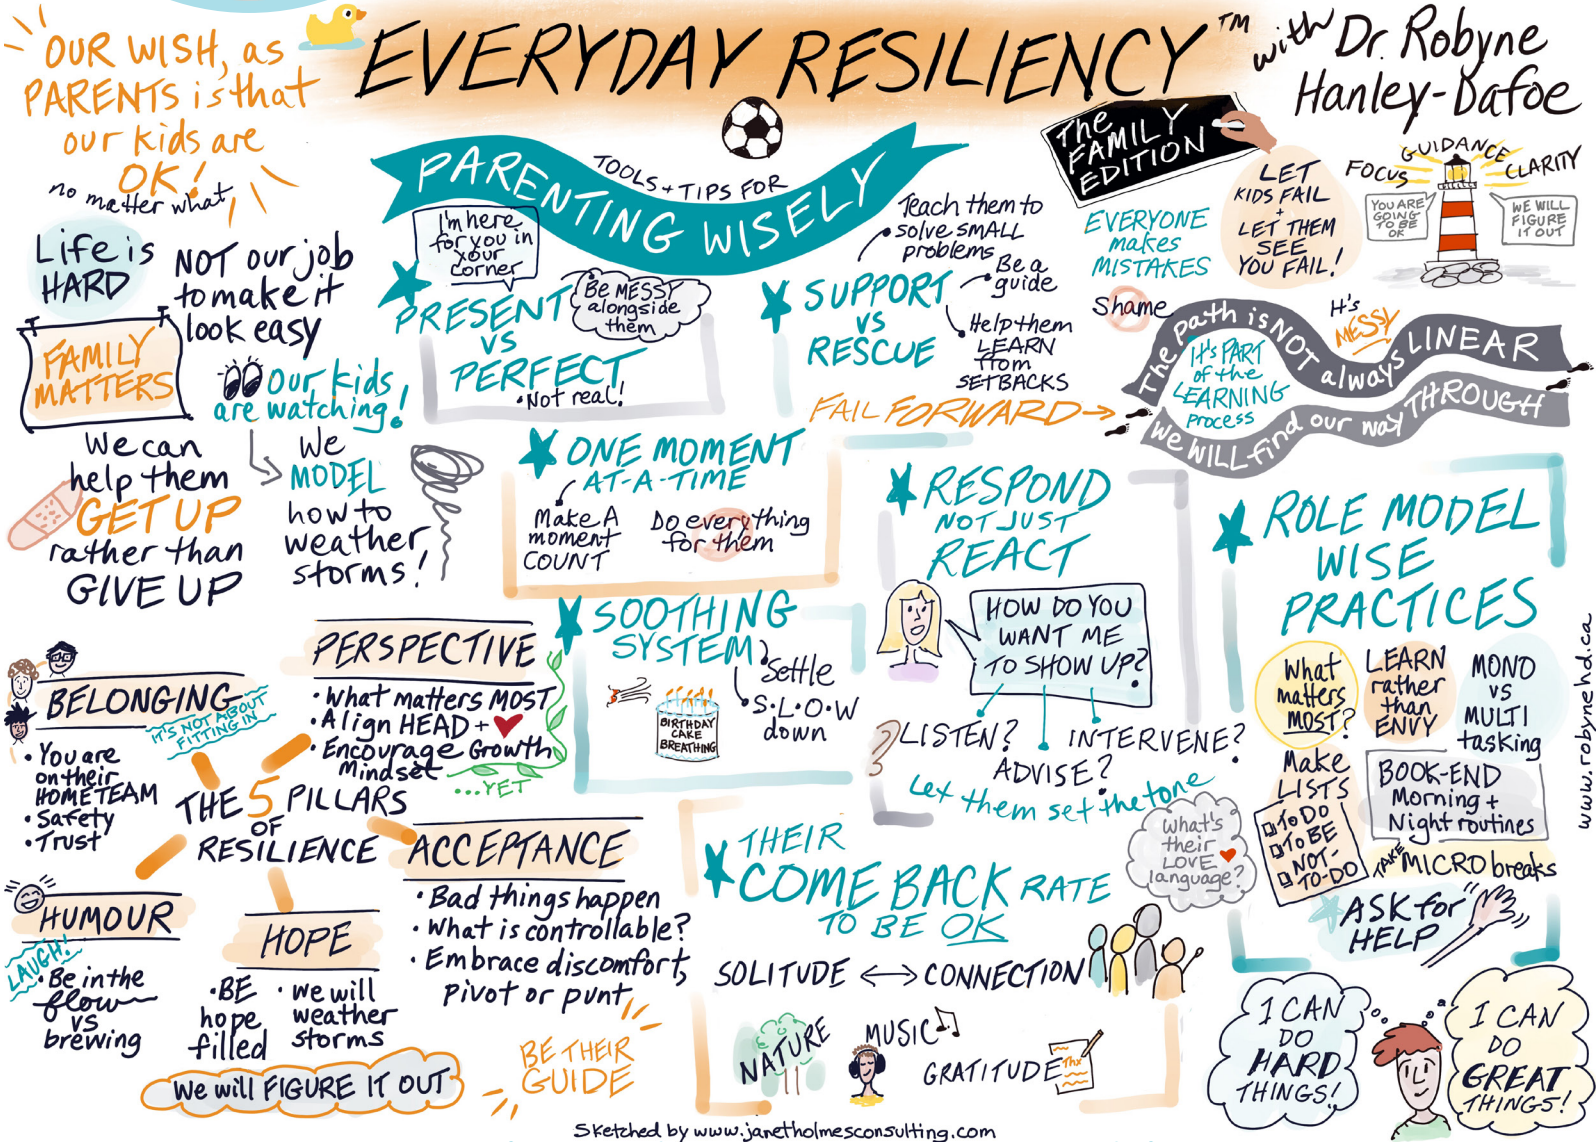 EVERYDAY RESILIENCY™
with Dr. Robyne
Hanley-Dafoe
The
FAMILY
EDITION
OUR WISH, as
PARENTS is that
our kids are
OK!
no matter what
Life is
HARD
NOT our job
to make it
look easy
FAMILY
MATTERS
Our kids
are watching!
We can
help them
GET UP
rather than
GIVE UP
We
MODEL
how to
weather
storms!
TOOLS + TIPS FOR
PARENTING WISELY
I'm here
for you in
your
corner
Be MESSY
alongside
them
PRESENT
VS
PERFECT
• Not real!
SUPPORT
VS
RESCUE
Teach them to
• solve SMALL
problems
• Be a
guide
• Help them
LEARN
from
SETBACKS
FAIL FORWARD
EVERYONE
makes
MISTAKES
Shame
LET
KIDS FAIL
+
LET THEM
SEE
YOU FAIL!
FOCUS
GUIDANCE
CLARITY
YOU ARE
GOING
TO BE
OK
WE WILL
FIGURE
IT OUT
The path is NOT always LINEAR
It's
MESSY
It's PART
of the
LEARNING
process
We WILL find our way THROUGH
ONE MOMENT
AT-A-TIME
Make A
moment
COUNT
Do everything
for them
RESPOND
NOT JUST
REACT
HOW DO YOU
WANT ME
TO SHOW UP?
LISTEN?
ADVISE?
INTERVENE?
?
Let them set the tone
What's
their
LOVE
language?
SOOTHING
SYSTEM
Settle
S•L•O•W
down
BIRTHDAY
CAKE
BREATHING
ROLE MODEL
WISE
PRACTICES
What
matters
MOST?
LEARN
rather
than
ENVY
MONO
VS
MULTI
tasking
Make
LISTS
TO DO
TO BE
NOT-
TO-DO
BOOK-END
Morning +
Night routines
TAKE MICRO breaks
ASK for
HELP
THE 5 PILLARS
OF
RESILIENCE
BELONGING
IT'S NOT ABOUT
FITTING IN
• You are
on their
HOME TEAM
• Safety
• Trust
PERSPECTIVE
• What matters MOST
• Align HEAD +
• Encourage Growth
Mindset
...YET
ACCEPTANCE
• Bad things happen
• What is controllable?
• Embrace discomfort,
pivot or punt
HUMOUR
LAUGH!
• Be in the
flow
vs
brewing
HOPE
• BE
hope
filled
• we will
weather
storms
We will FIGURE IT OUT
BE THEIR
GUIDE
THEIR
COME BACK RATE
TO BE OK
SOLITUDE ↔ CONNECTION
NATURE
MUSIC
GRATITUDE
Thx
I CAN
DO
HARD
THINGS!
I CAN
DO
GREAT
THINGS!
www.robynehd.ca
Sketched by www.janetholmesconsulting.com